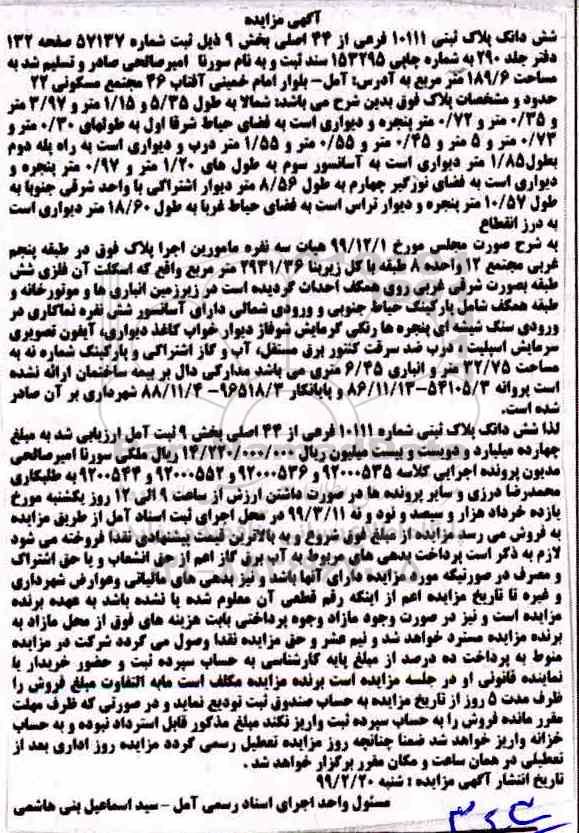 آگهی مزایده
شش دانگ پلاک ثبتی ۱۰۱۱۱ فرعی از ۴۴ اصلی بخش ۹ ذیل ثبت شماره ۵۷۱۳۷ صفحه ۱۳۲
دفتر جلد ۲۹۰ به شماره چاپی ۱۵۳۲۹۵ سند ثبت و به نام سورنا امیرصالحی صادر و تسلیم شد به
مساحت ۱۸۹/۶ متر مربع به آدرس: آمل- بلوار امام خمینی آفتاب ۴۶ مجتمع مسکونی ۲۲
حدود و مشخصات پلاک فوق بدین شرح می باشد: شمالا به طول ۵/۳۵ و ۱/۱۵ متر و ۳/۹۷ متر
و ۰/۳۵ متر و ۰/۷۲ متر پنجره و دیواری است به فضای حیاط شرقا اول به طولهای ۰/۳۰ متر و
۰/۷۳ متر و ۵ متر و ۰/۴۵ متر و ۰/۵۵ متر و ۱/۵۵ متر درب و دیواری است به راه پله دوم
بطول ۱/۸۵ متر دیواری است به آسانسور سوم به طول های ۱/۲۰ متر و ۰/۹۷ متر پنجره و
دیواری است به فضای نورگیر چهارم به طول ۸/۵۶ متر دیوار اشتراکی با واحد شرقی جنوبا به
طول ۱۰/۵۷ متر پنجره و دیوار تراس است به فضای حیاط غربا به طول ۱۸/۶۰ متر دیواری است
به درز انقطاع
به شرح صورت مجلس مورخ ۹۹/۱۲/۱ هیات سه نفره مامورین اجرا پلاک فوق در طبقه پنجم
غربی مجتمع ۱۲ واحدی ۸ طبقه با کل زیربنا ۲۹۳۱/۳۶ متر مربع واقع که اسکلت آن فلزی شش
طبقه بصورت شرقی غربی روی همکف احداث گردیده است در زیرزمین انباری ها و موتورخانه و
طبقه همکف شامل پارکینگ حیاط جنوبی و ورودی شمالی دارای آسانسور شش نفره نماکاری در
ورودی سنگ شیشه ای پنجره ها رنگی گرمایش شوفاژ دیوار خواب کاغذ دیواری، آیفون تصویری
سرمایش اسپلیت ، درب ضد سرقت کنتور برق مستقل، آب و گاز اشتراکی و پارکینگ شماره نه به
مساحت ۲۲/۷۵ متر و انباری ۶/۳۵ متری می باشد مدارکی دال بر بیمه ساختمان ارائه نشده
است پروانه ۵۴۱۰۵/۳-۸۶/۱۱/۱۳ و پایانکار ۹۶۵۱۸/۳- ۸۸/۱۱/۴ شهرداری بر آن صادر
شده است.
لذا شش دانگ پلاک ثبتی شماره ۱۰۱۱۱ فرعی از ۴۴ اصلی بخش ۹ ثبت آمل ارزیابی شد به مبلغ
چهارده میلیارد و دویست و بیست میلیون ریال ۱۴/۲۲۰/۰۰۰/۰۰۰ ریال ملکی سورنا امیرصالحی
مدیون پرونده اجرایی کلاسه ۹۲۰۰۰۵۳۵ و ۹۲۰۰۰۵۳۶ و ۹۲۰۰۰۵۵۲ و ۹۲۰۰۵۴۴ به طلبکاری
محمدرضا درزی و سایر پرونده ها در صورت داشتن ارزش از ساعت ۹ الی ۱۲ روز یکشنبه مورخ
یازده خرداد هزار و سیصد و نود و نه ۹۹/۳/۱۱ در محل اجرای ثبت اسناد آمل از طریق مزایده
به فروش می رسد مزایده از مبلغ فوق شروع و به بالاترین قیمت پیشنهادی نقدا فروخته می شود
لازم به ذکر است پرداخت بدهی های مربوط به آب برق گاز اعم از حق انشعاب و یا حق اشتراک
و مصرف در صورتیکه مورد مزایده دارای آنها باشد و نیز بدهی های مالیاتی وعوارض شهرداری
و غیره تا تاریخ مزایده اعم از اینکه رقم قطعی آن معلوم شده یا نشده باشد به عهده برنده
مزایده است و نیز در صورت وجود مازاد وجوه پرداختی بابت هزینه های فوق از محل مازاد به
برنده مزایده مسترد خواهد شد و نیم عشر و حق مزایده نقدا وصول می گردد شرکت در مزایده
منوط به پرداخت ده درصد از مبلغ پایه کارشناسی به حساب سپرده ثبت و حضور خریدار یا
نماینده قانونی او در جلسه مزایده است برنده مزایده مکلف است مابه التفاوت مبلغ فروش را
ظرف مدت ۵ روز از تاریخ مزایده به حساب صندوق ثبت تودیع نماید و در صورتی که ظرف مهلت
مقرر مانده فروش را به حساب سپرده ثبت واریز نکند مبلغ مذکور قابل استرداد نبوده و به حساب
خزانه واریز خواهد شد ضمنا چنانچه روز مزایده تعطیل رسمی گردد مزایده روز اداری بعد از
تعطیلی در همان ساعت و مکان مقرر برگزار خواهد شد .
تاریخ انتشار آگهی مزایده : شنبه ۹۹/۲/۲۰
مسئول واحد اجرای اسناد رسمی آمل - سید اسماعیل بنی هاشمی